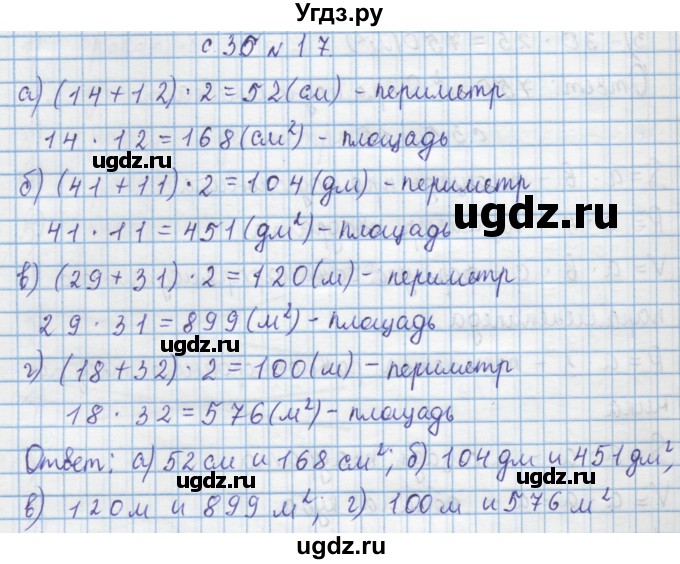 Угдз.ру
с 36 № 17
а) (14+12)·2=52(см) - периметр
14·12=168(см²) - площадь
ugdz.ru
б) (41+11)·2=104(дм) - периметр
ugdz.ru
41·11=451(дм²) - площадь
в) (29+31)·2=120(м) - периметр
29·31=899(м²) - площадь
ugdz.ru
г) (18+32)·2=100(м) - периметр
18·32=576(м²) - площадь
ugdz.ru
Ответ: а) 52 см и 168 см²; б) 104 дм и 451 дм²;
в) 120м и 899 м²; г) 100м и 576 м²
ugdz.ru